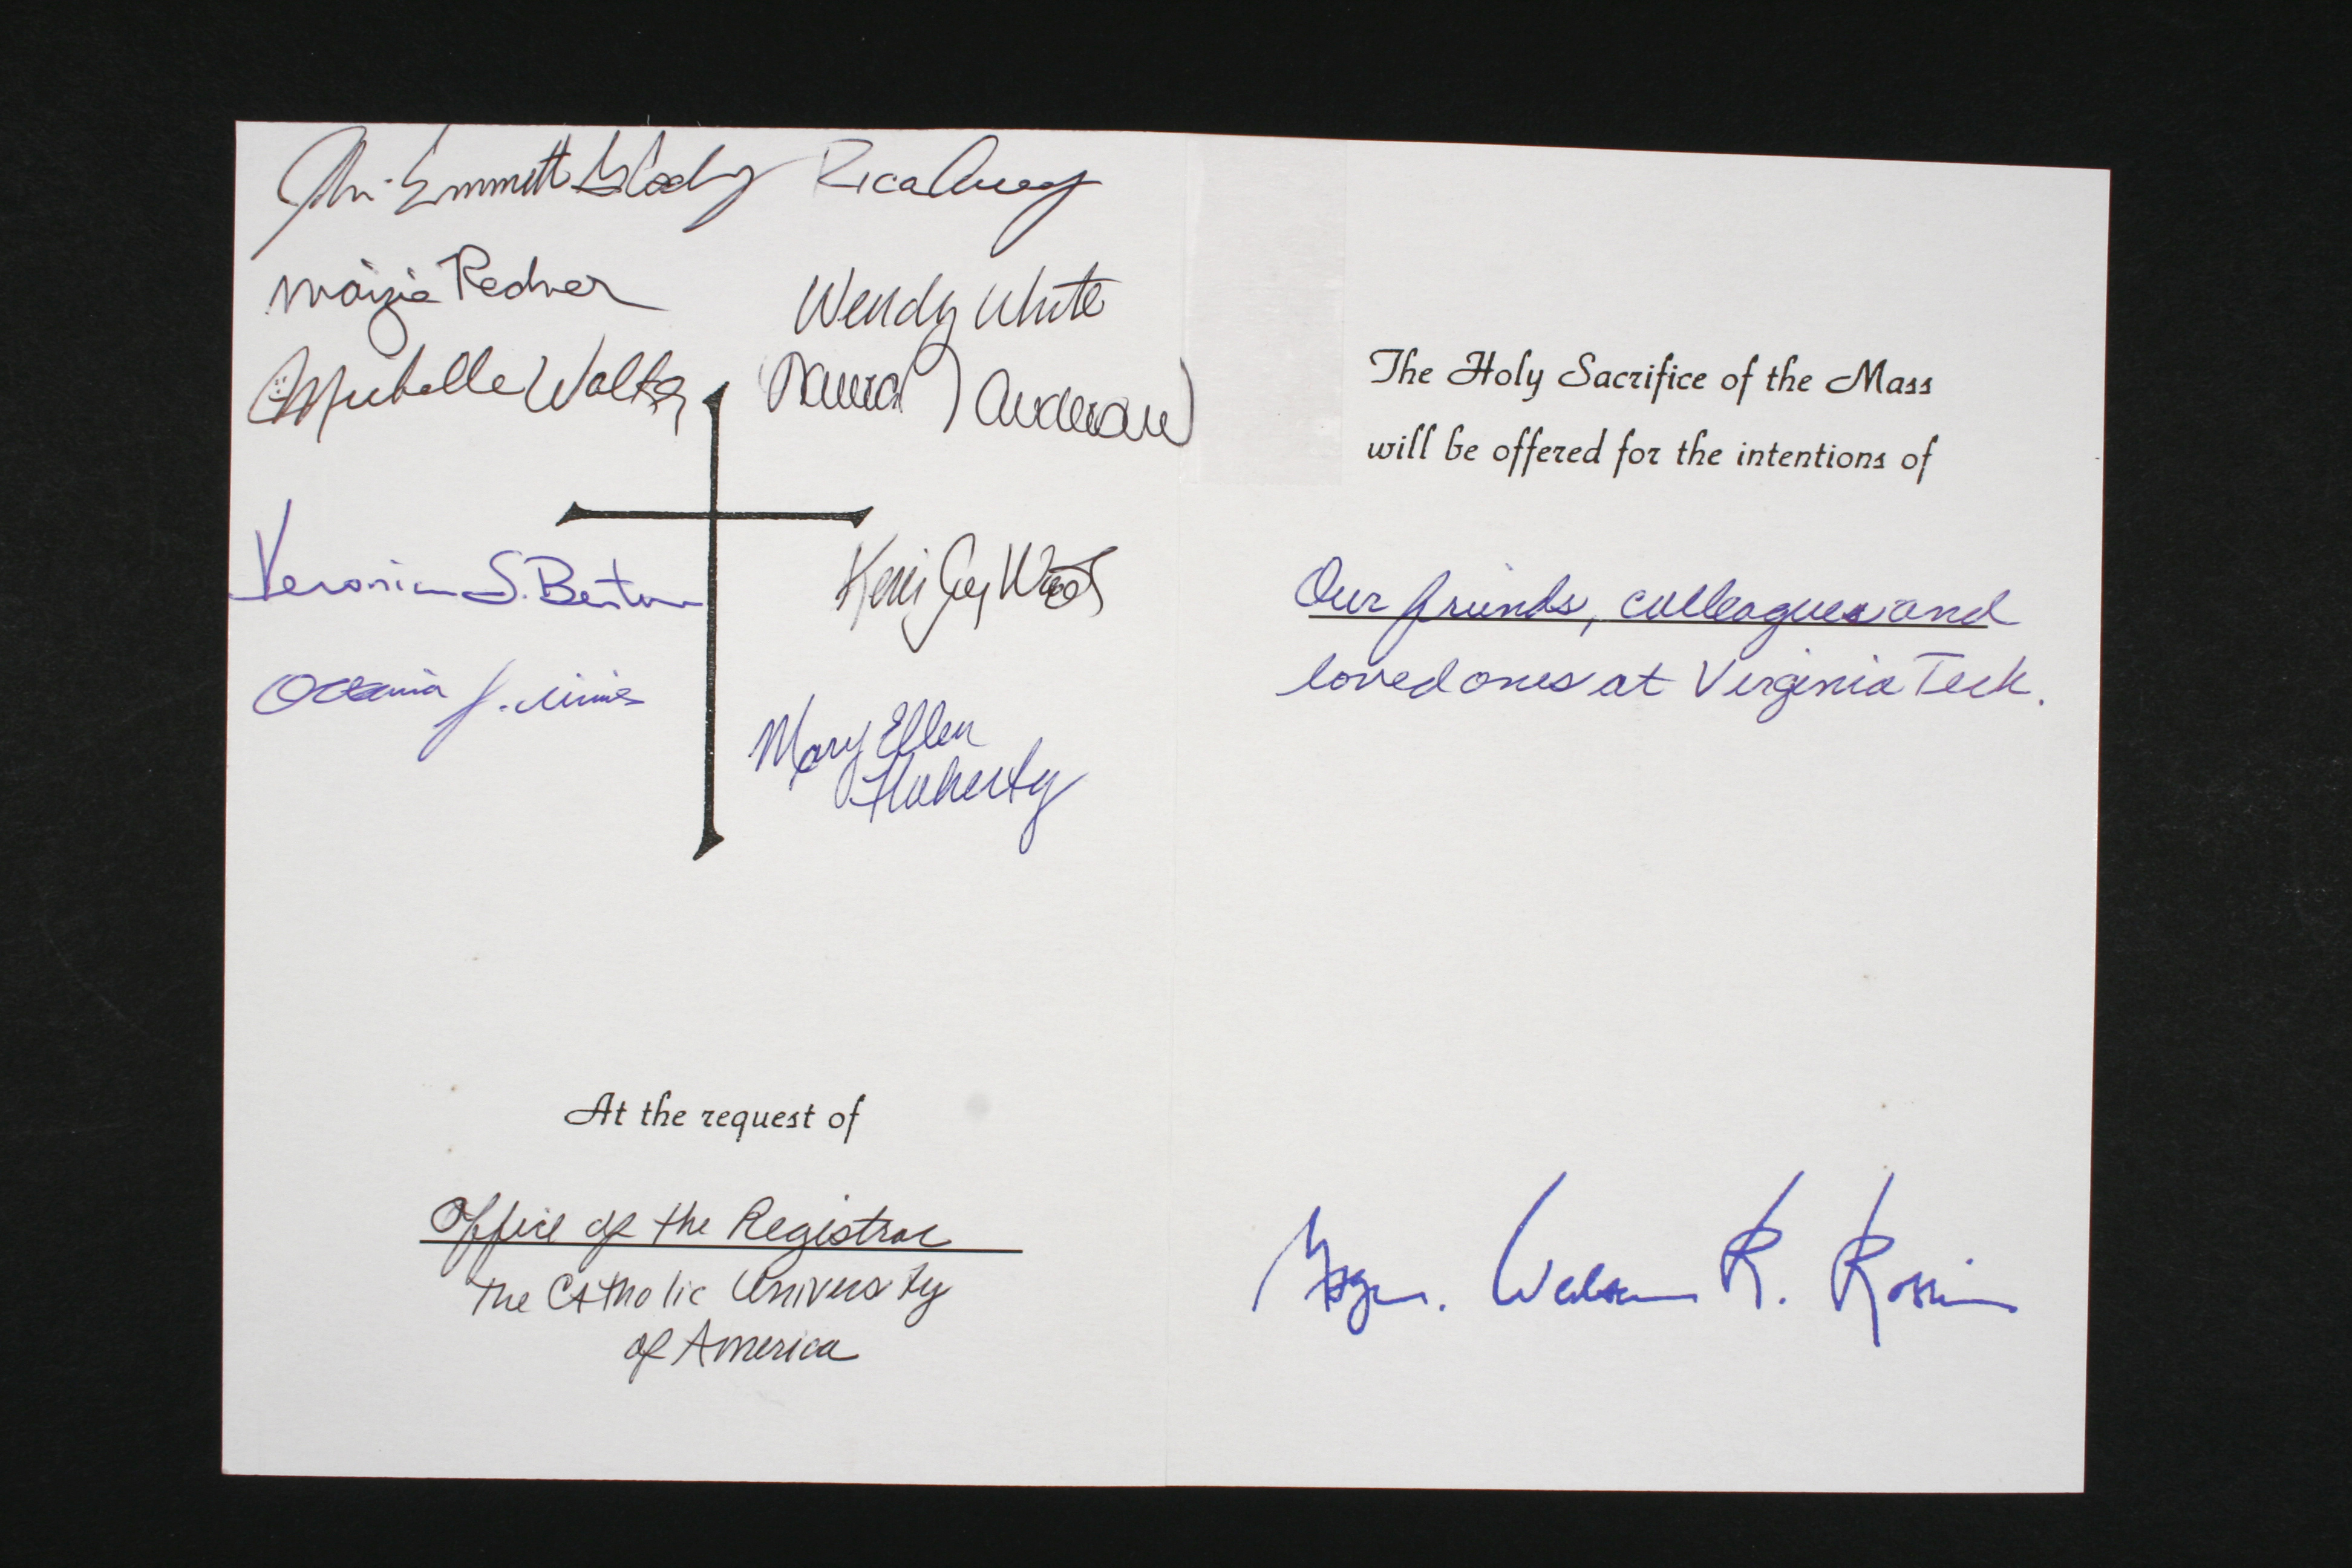 Emmett
Rica
Margie Redner
Wendy White
Michelle Walter
Laura Anderson
Veronica S. Berton
Keri Joy Wood
J.
Mary Ellen
Flaherty
At the request of
Office of the Registrar
The Catholic University
of America
The Holy Sacrifice of the Mass
will be offered for the intentions of
Our friends, colleagues and
loved ones at Virginia Tech.
Msgr. R. Rossi